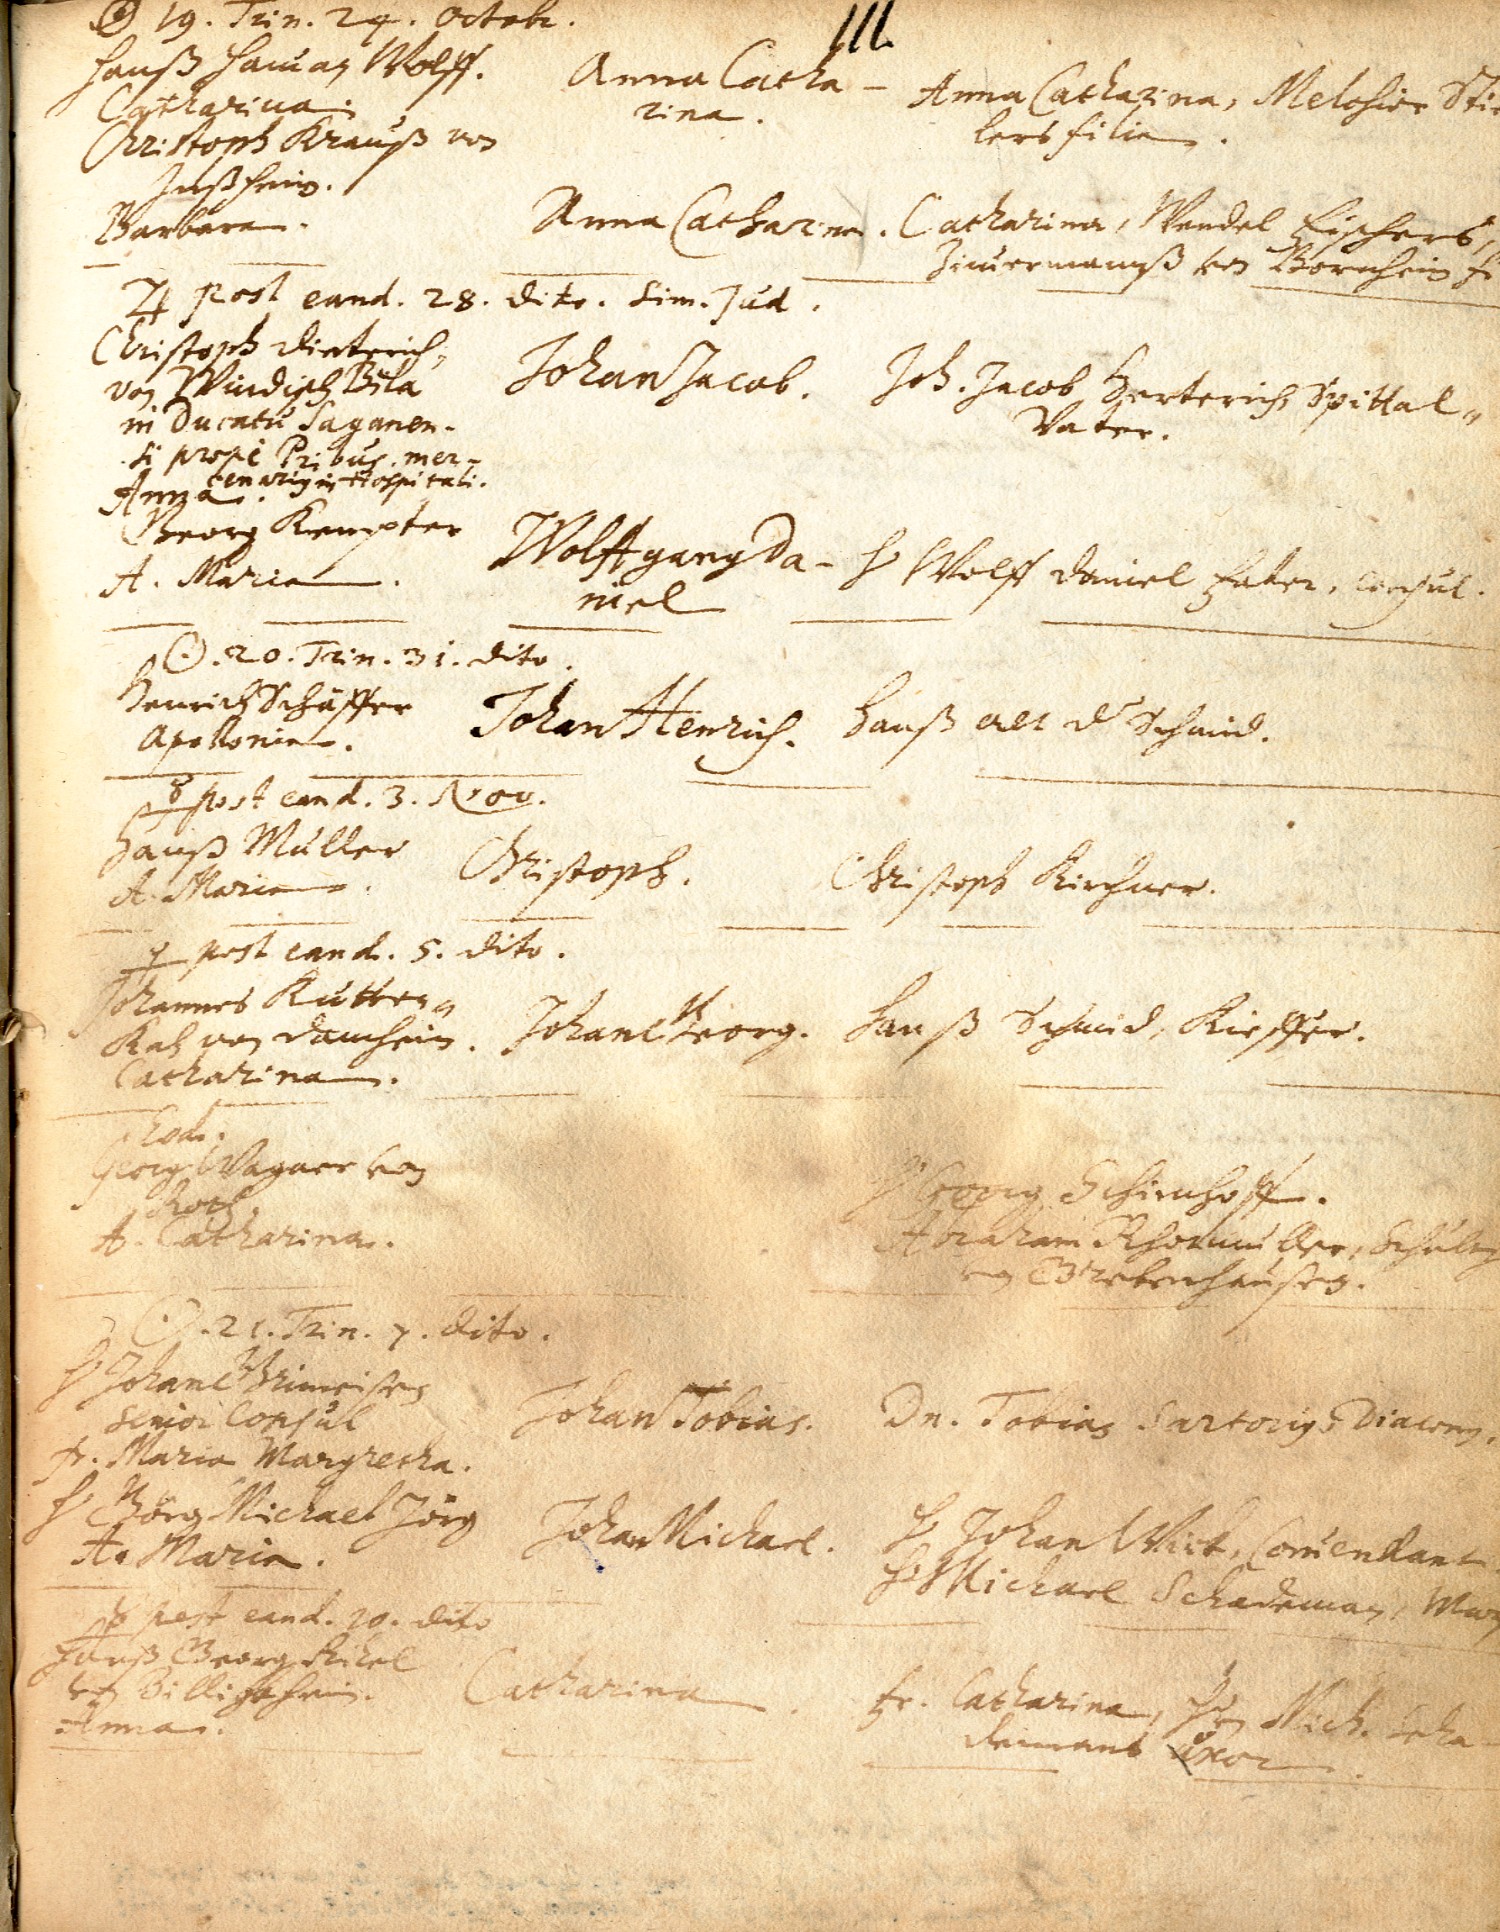 ☉ 19. Trin. 24. Octobr.
111.
Hanß Haman Wolff.
Catharina.
Anna Catha-
rina.
Anna Catharina, Melchior Sti
lers filia.
Christoph Krauß von
Jußheim.
Barbara.
Anna Catharina.
Catharina, Wendel Fischers,
Zimermanß von Bornheim fi
♃ post eand. 28. dito. Sim. Jud.
Christoph Dieterich,
von Windisch Bila
in Ducatu Saganen-
si prope Pribus, mer-
cenarius in Hospitali.
Anna.
Johan Jacob.
Joh. Jacob Herterich Spittal-
Vater.
Georg Kempter
A. Maria.
Wolffgang Da-
niel
H Wolff Daniel Faber, Consul.
☉. 20. Trin. 31. dito.
Henrich Schäffer
Apollonia.
Johan Henrich.
Hanß alt der Schmid.
☿ post eand. 3. Nov.
Hanß Müller
A. Maria.
Christoph.
Christoph Kirchner.
♀ post eand. 5. dito.
Johannes
Kal von Damheim.
Catharina.
Johan Georg.
Hanß Schmid, Kieffer.
Eod.
Georg Wagner von
Roth.
A. Catharina.
H Georg Schimhoff.
Abraham Schultz
☉. 21. Trin. 7. dito.
H Johan
Senior Consul
Fr. Maria Margretha.
Johan Tobias.
Dn. Tobias Sartorius Diaconus.
H Görg Michael Jörg
A. Maria.
Johan Michael.
H Johan Wick, Comendant
H Michael Schademan,
☿ post eand. 10. dito
Hanß Georg Kikel
von Billigheim.
Anna.
Catharina.
Fr. Catharina, Hrn Mich. Scha-
demans uxor.